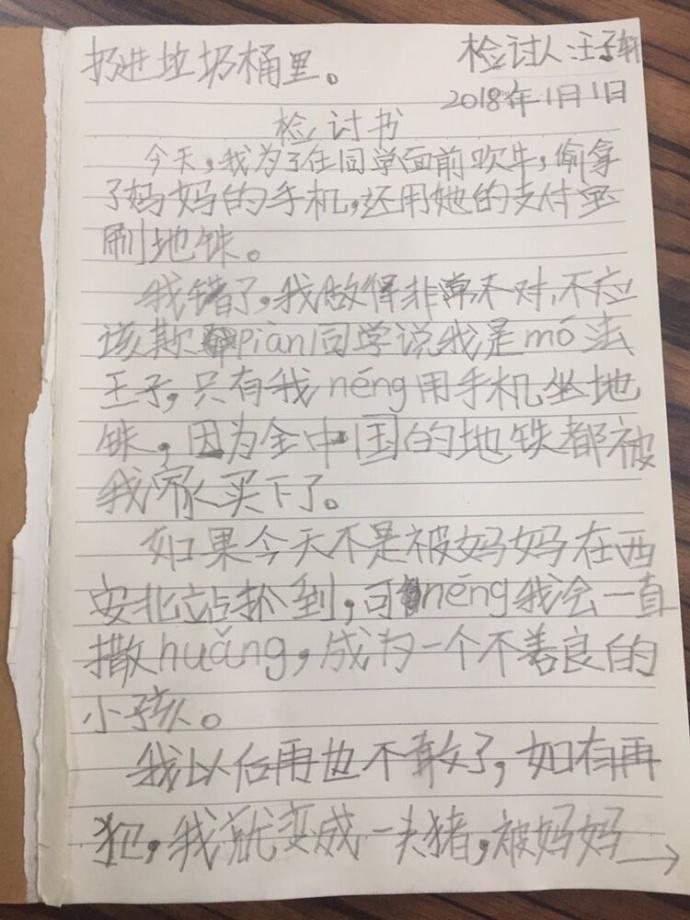 扔进垃圾桶里。
检讨人:汪子轩
2018年1月1日
检讨书
今天,我为了在同学面前吹牛,偷拿
了妈妈的手机,还用她的支付宝
刷地铁。
我错了,我做得非常不对,不应
该欺piàn同学说我是mó法
王子,只有我néng用手机坐地
铁,因为全中国的地铁都被
我家买下了。
如果今天不是被妈妈在西
安北站抓到,可néng我会一直
撒huǎng,成为一个不善良的
小孩。
我以后再也不敢了,如有再
犯,我就变成一头猪,被妈妈→